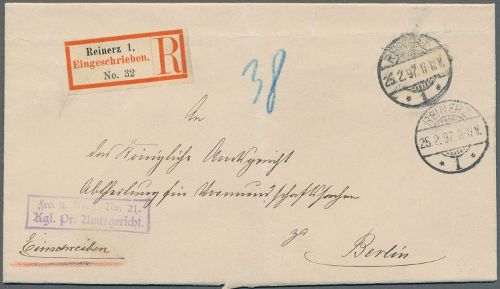 Reinerz 1.
Eingeschrieben.
No. 32
R
38
REINERZ
25.2.97.11-12.V.
* 1 *
REINERZ
25.2.97.11-12.V.
* 1 *
An
das Königliche Amtsgericht
Abtheilung für Vormundschaftssachen
zu
Berlin
Frei No. 21.
Kgl. Pr. Amtsgericht.
Einschreiben